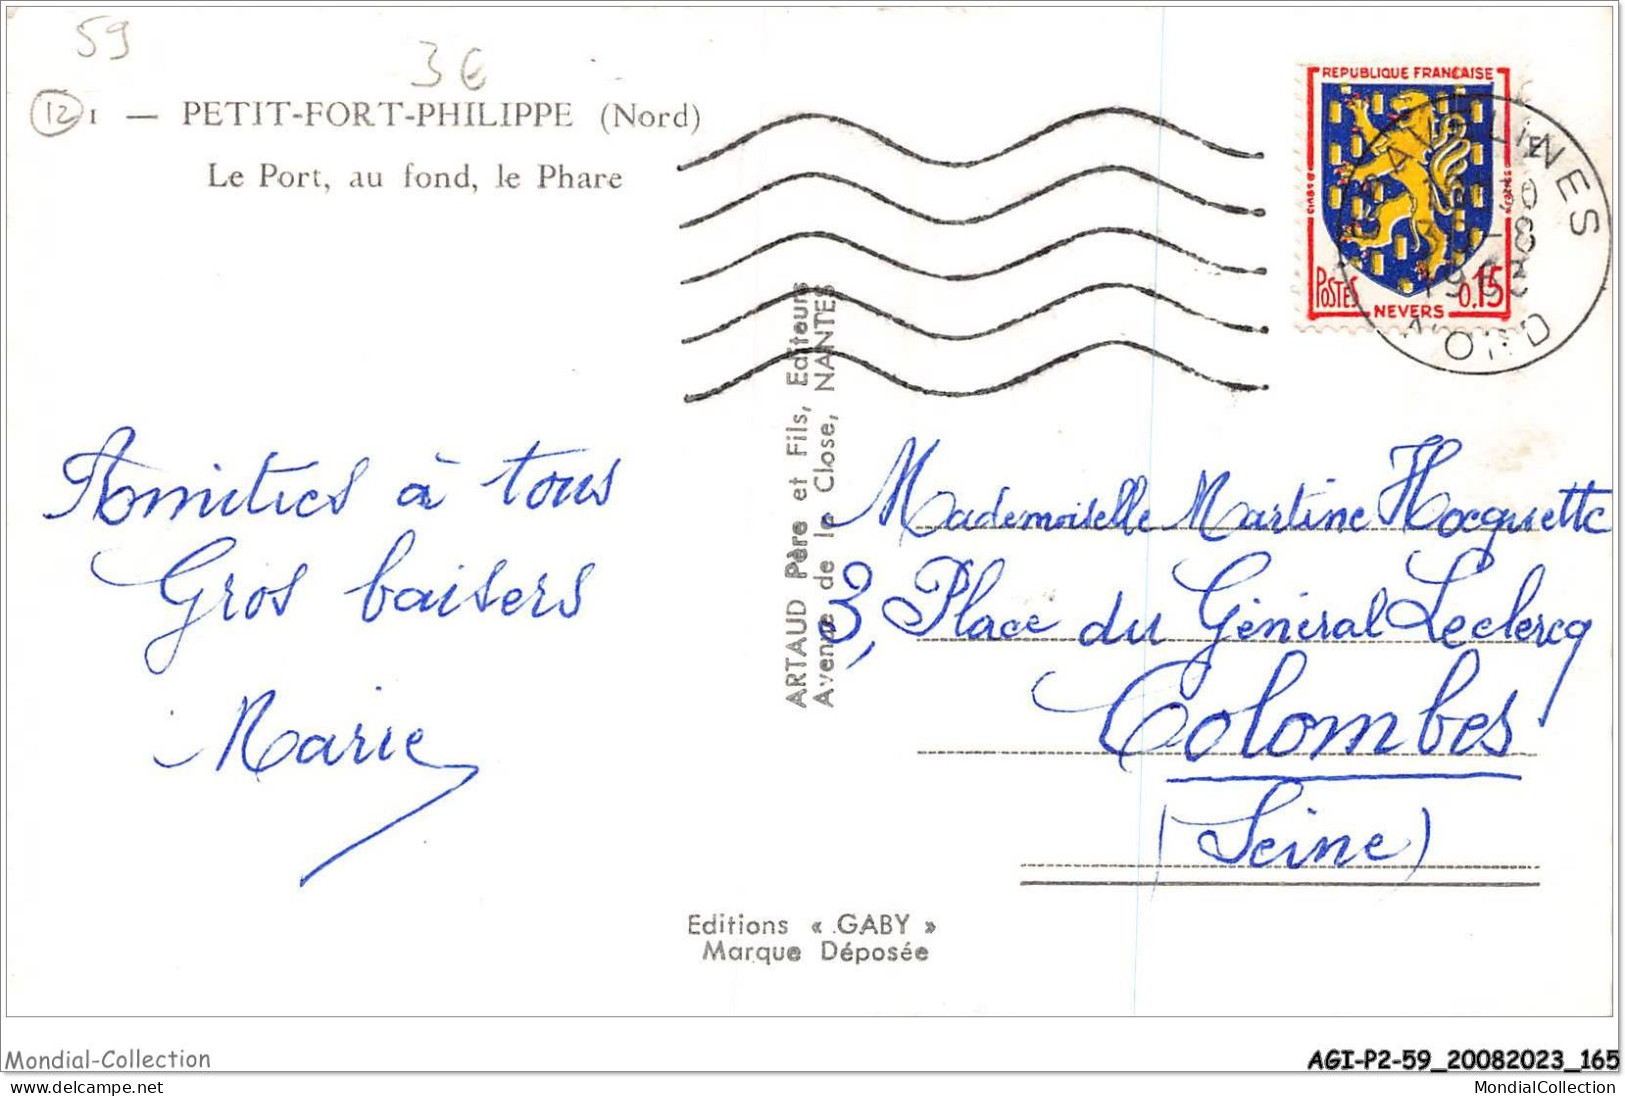 59
3€
12
1 — PETIT-FORT-PHILIPPE (Nord)
Le Port, au fond, le Phare
REPUBLIQUE FRANÇAISE
POSTES
0,15
NEVERS
GRAVELINES
NORD
ARTAUD Père et Fils, Editeurs
Avenue de la Close, NANTES
Amitiés à tous
Gros baisers
Marie
Mademoiselle Martine Hocquette
3, Place du Général Leclercq
Colombes
(Seine)
Editions « GABY »
Marque Déposée
Mondial-Collection
AGI-P2-59_20082023_165
www.delcampe.net
MondialCollection